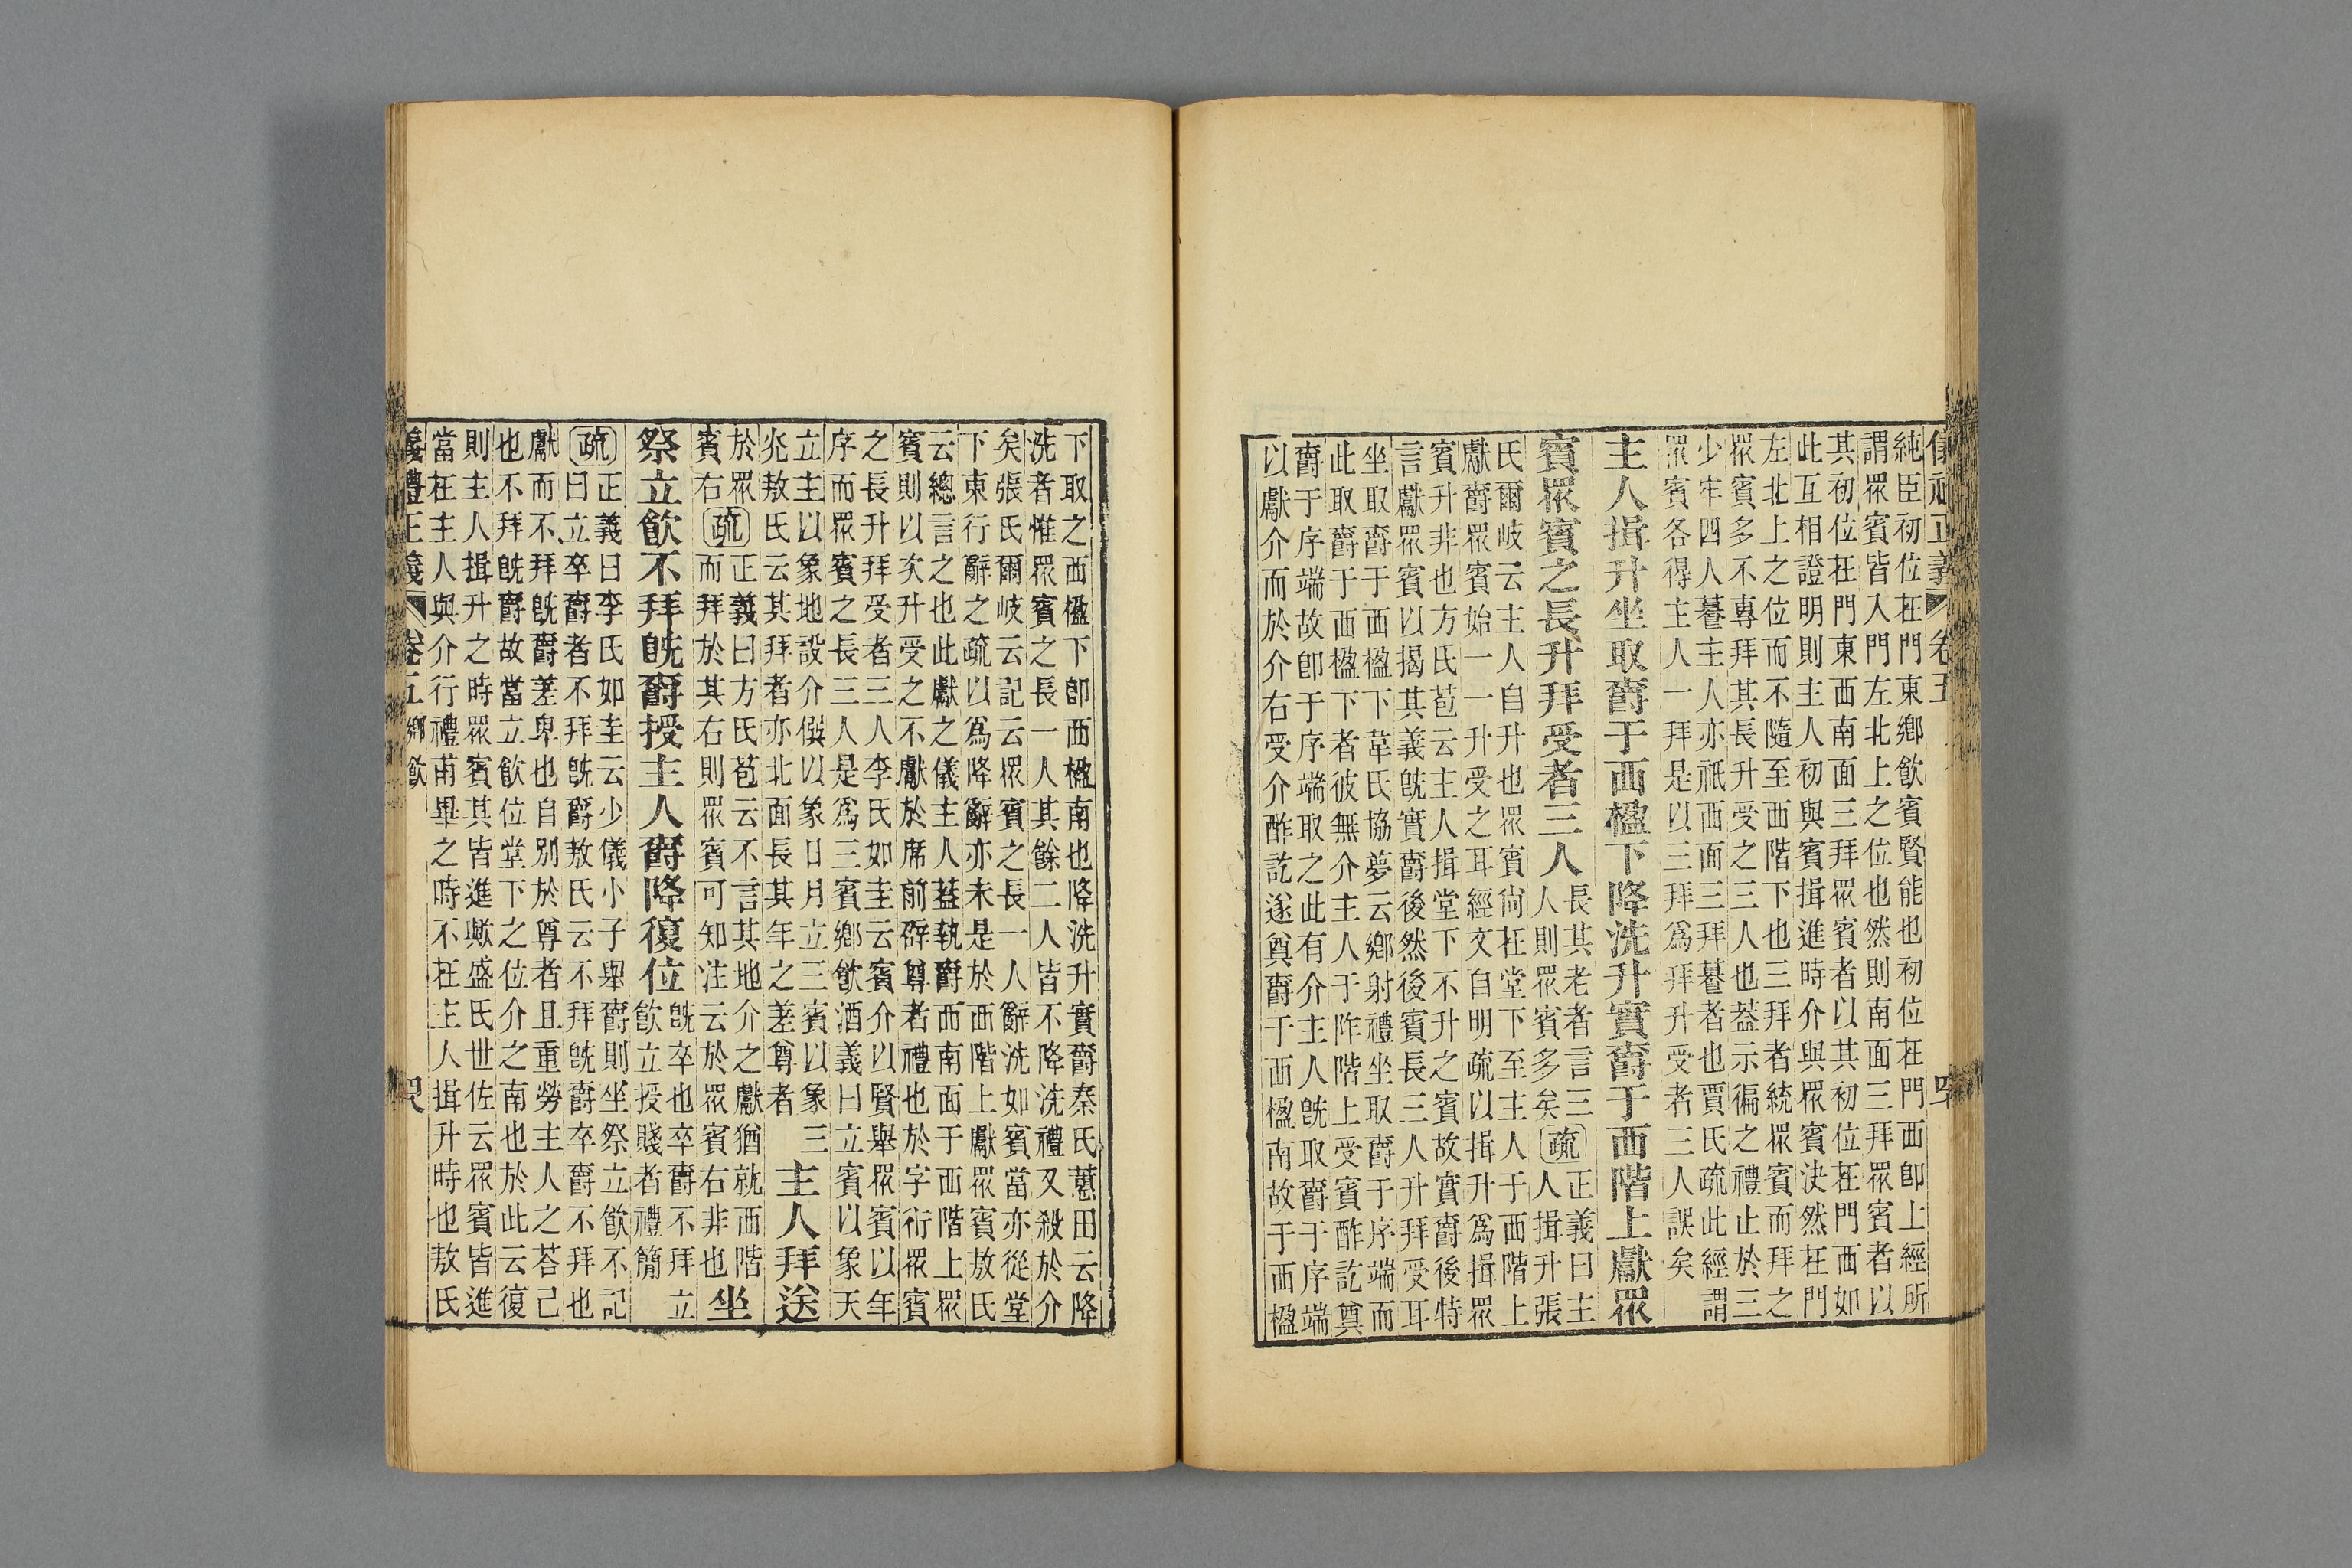 純臣初位在門東鄉飮賓賢能也初位在門西卽上經所
謂眾賓皆入門左北上之位也然則南面三拜眾賓者以
其初位在門東西南面三拜眾賓者以其初位在門西如
此互相證明則主人初與賓揖進時介與眾賓決然在門
左北上之位而不隨至西階下也三拜者統眾賓而拜之
眾賓多不專拜其長升受之三人也葢示徧之禮止於三
少牢四人蕓主人亦祇西面三拜蕓者也賈氏疏此經謂
眾賓各得主人一拜是以三拜爲拜升受者三人誤矣
主人揖升坐取爵于西楹下降洗升實爵于西階上獻眾
賓眾賓之長升拜受者三人
長其老者言三
人則眾賓多矣
疏
正義曰主
人揖升張
氏爾岐云主人自升也眾賓尙在堂下至主人于西階上
獻爵眾賓始一一升受之耳經文自明疏以揖升爲揖眾
賓升非也方氏苞云主人揖堂下不升之賓故實爵後特
言獻眾賓以揭其義旣實爵後然後賓長三人升拜受耳
坐取爵于西楹下葦氏協夢云鄉射禮坐取爵于序端而
此取爵于西楹下者彼無介主人于阼階上受賓酢訖奠
爵于序端故卽于序端取之此有介主人旣取爵于序端
以獻介而於介右受介酢訖遂奠爵于西楹南故于西楹
儀禮正義 卷五
下取之西楹下卽西楹南也降洗升實爵秦氏蕙田云降
洗者惟眾賓之長一人其餘二人皆不降洗禮又殺於介
矣張氏爾岐云記云眾賓之長一人辭洗如賓當亦從堂
下東行辭之疏以爲降辭亦未是於西階上獻眾賓敖氏
云總言之也此獻之儀主人葢執爵而南面于西階上眾
賓則以次升受之不獻於席前辟尊者禮也於字衍眾賓
之長升拜受者三人李氏如圭云賓介以賢舉眾賓以年
序而眾賓之長三人是爲三賓鄉飮酒義曰立賓以象天
立主以象地設介僎以象日月立三賓以象三
光敖氏云其拜者亦北面長其年之差尊者
主人拜送
於眾
賓右
疏
正義曰方氏苞云不言其地介之獻猶就西階
而拜於其右則眾賓可知注云於眾賓右非也
坐
祭立飮不拜旣爵授主人爵降復位
旣卒也卒爵不拜立
飮立授賤者禮簡
疏
正義曰李氏如圭云少儀小子舉爵則坐祭立飮不記
曰立卒爵者不拜旣爵敖氏云不拜旣爵卒爵不拜也
獻而不拜旣爵差卑也自別於尊者且重勞主人之荅己
也不拜旣爵故當立飮位堂下之位介之南也於此云復
則主人揖升之時眾賓其皆進歟盛氏世佐云眾賓皆進
當在主人與介行禮甫畢之時不在主人揖升時也敖氏
儀禮正義 卷五 鄉飮